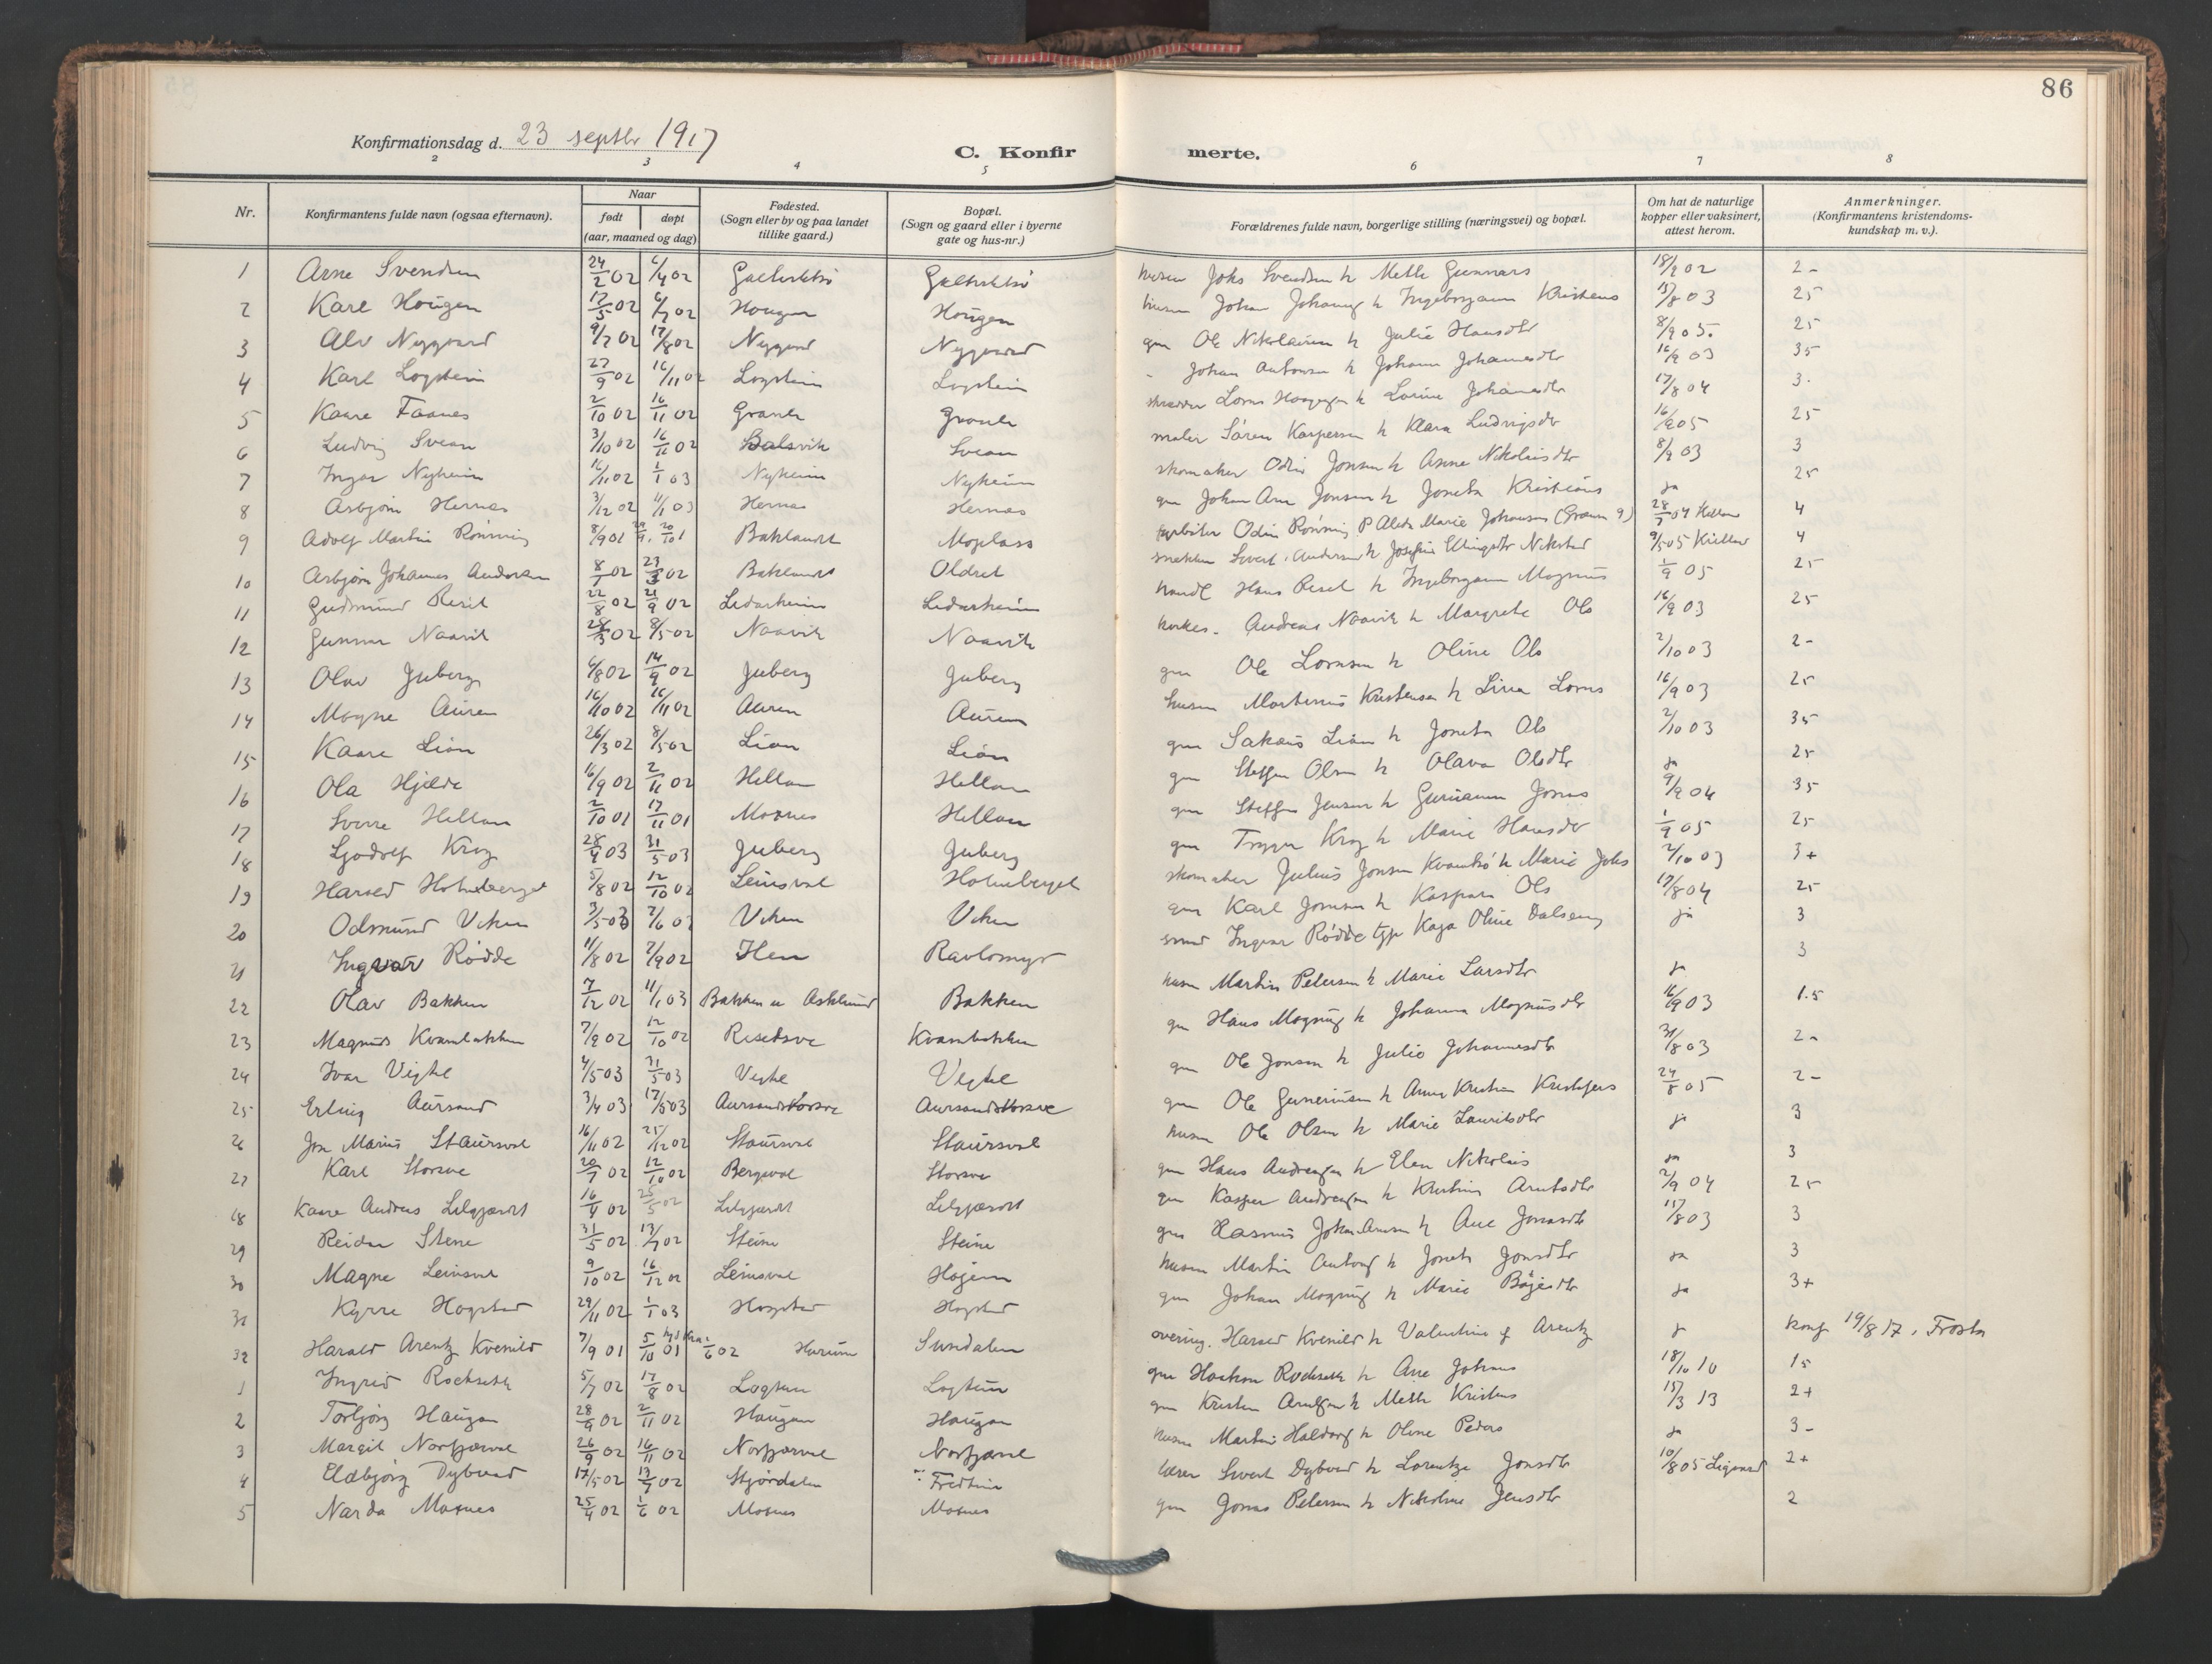 86
Konfirmationsdag d. 23 septbr 1917
C. Konfir merte.
2 3 4 5 6 7 8
Nr. Konfirmantens fulde navn (ogsaa efternavn). Naar født døpt (aar, maaned og dag) Fødested. (Sogn eller by og paa landet tillike gaard.) Bopæl. (Sogn og gaard eller i byerne gate og hus-nr.) Forældrenes fulde navn, borgerlige stilling (næringsvei) og bopæl. Om hat de naturlige kopper eller vaksinert, attest herom. Anmerkninger. (Konfirmantens kristendoms-kundskap m. v.).
1 Arne Svendsen 24/2 02 6/4 02 Joh's Svendsen h Mette Gunnars 18/9 02 2-
2 Karl Hougen 17/5 02 6/7 02 Hougen Hougen husm Johan h Ingeborganna Kristens 15/8 03 25
3 Alv Nygaard 9/7 02 17/8 02 Nygaard Nygaard gm Ole Nikolaisen h Julie Hansdtr 8/9 05. 25
4 Karl Logstein 27/9 02 16/11 02 Logstein Logstein - Johan Antonsen h Johanna Johannesdtr 16/9 03 35
5 Kaare Faanes 2/10 02 16/11 02 Graneli Graneli skrædder Lorns h Lovine Johannesdtr 17/8 04 3-
6 Ludvig Svean 3/10 02 16/11 02 Balsvik Svean maler Søren Kaspersen h Klara Ludvigsdtr 16/9 05 25
7 Ingar Nyheim 16/11 02 1/1 03 Nyheim Nyheim skomaker Odin Jonsen h Anne Nikolaisdtr 8/9 03 3
8 Asbjørn Hernes 3/12 02 11/1 03 Hernes Hernes gm Johan Arn Jonsen h Joneta Kristians ja 25
9 Adolf Martin Rønning 8/9 01 20/10 1 Baklandet Moplass Odin Rønning P Alida Marie Johansen 28/7 04 4
10 Asbjørn Johannes Andersen 8/1 02 23/3 02 Baklandet Oldret snekker Sivert Andersen h Josefine Ellingsdtr Nikstad 9/5 05 4
11 Gudmund Reset 22/8 02 21/9 02 Ledarheim Ledarheim handl Hans Reset h Ingeborganna Magnus 1/9 05 25
12 Gunnar Naavik 28/3 02 8/5 02 Naavik Naavik kirkes. Andreas Naavik h Margrete Ols 16/9 03 25
13 Olav Juberg 6/8 02 14/9 02 Juberg Juberg gm Ole Lornsen h Oline Ols 2/10 03 2-
14 Magne Auren 16/10 02 16/11 02 Auren Auren husm Martinus Kristensen h Lina Lorns 16/9 03 25
15 Kaare Lian 26/3 02 8/5 02 Lian Lian gm Sakæus Lian h Joneta Ols 2/10 03 35
16 Ola Hjelde 16/9 02 2/11 02 Hellan Hellan gm Steffen Olsen h Olava Olsdtr ja 25
17 Sverre Hellan 2/10 01 17/11 01 Moxnes Hellan gm Steffen Jensen h Gurianna Jonas 9/9 04 35
18 Ljodolf Krog 28/4 03 31/5 03 Juberg Juberg gm Trygve Krog h Marie Hansdtr 1/9 05 25
19 Harald Holmberget 5/8 02 12/10 02 Leinsval Holmberget skomaker Julius Jonsen h Marie Johs 2/10 03 3+
20 Odmund Viken 3/5 03 7/6 03 Viken Viken gm Karl Jonsen h Kaspara Ols 17/8 04 25
21 Ingvar Rødde 11/8 02 7/9 02 Hen Ravlomyr smed Ingvar Rødde tjp Kaja Oline Dalseng ja 3
22 Olav Bakken 7/12 02 11/1 03 Bakken u Asklund Bakken husm Martin Petersen h Marie Larsdtr ja 3
23 Magnus Kvambakken 7/9 02 12/10 02 Kvambakken gm Hans Magnus h Johanna Magnusdtr 16/9 03 1.5
24 Ivar Vigtel 4/5 03 31/5 03 Vigtel Vigtel gm Ole Jonsen h Julie Johannesdtr 31/8 03 2-
25 Erling Aursand 3/4 03 17/5 03 gm Ole Guneriusen h Anna Kristine Kristofers 24/8 05 2-
26 Jon Marius Staursval 16/11 02 25/12 02 Staursval Staursval husm Ole Olsen h Marie Lauritsdtr ja 3
27 Karl Storsve 20/7 02 12/10 02 Bergsval Storsve gm Hans h Elen Nikolais ja 3
28 Kaare Andreas Lilgjærdet 16/4 02 25/5 02 Lilgjærdet Lilgjærdet gm Kasper h Kristine Arntsdtr 2/9 04 25
29 Reidar Stene 31/5 02 13/7 02 Steine Steine gm Rasmus Johan Arnsen h Ane Jonasdtr 11/8 03 3
30 Magne Leinsval 9/10 02 16/12 02 Leinsval Højem husm Martin h Joneta Jonsdtr ja 3
31 Kyrre Hogstad 29/11 02 1/1 03 Hogstad Hogstad gm Johan Magnus h Marie Børjesdtr ja 3+
32 Harald Arentz Kvenild 7/9 01 5/10 01 /6 02 Hurum Sundalen Harald Kvenild h Valentine f Arentz ja konf 19/8 17 i Frosta
1 Ingrid Rockseth 5/7 02 17/8 02 Logtun Logtun gm Haakon Rockseth h Ane Johans 18/10 10 15
2 Torbjørg Haugan 28/9 02 2/11 02 Haugan Haugan gm Kristen h Mette Kristens 15/3 13 2+
3 Margit Norfjærval 26/9 02 16/11 02 Norfjærval Norfjærval husm Martin h Oline Peders ja 3-
4 Eldbjørg Dybvad 17/5 02 13/7 02 Stjørdalen Fredheim lærer Sivert Dybvad h Lorentze Jonsdtr 10/8 05 2+
5 Narda Moxnes 25/4 02 1/6 02 Moxnes Moxnes gm Jonas Petersen h Nikoline Jensdtr 2